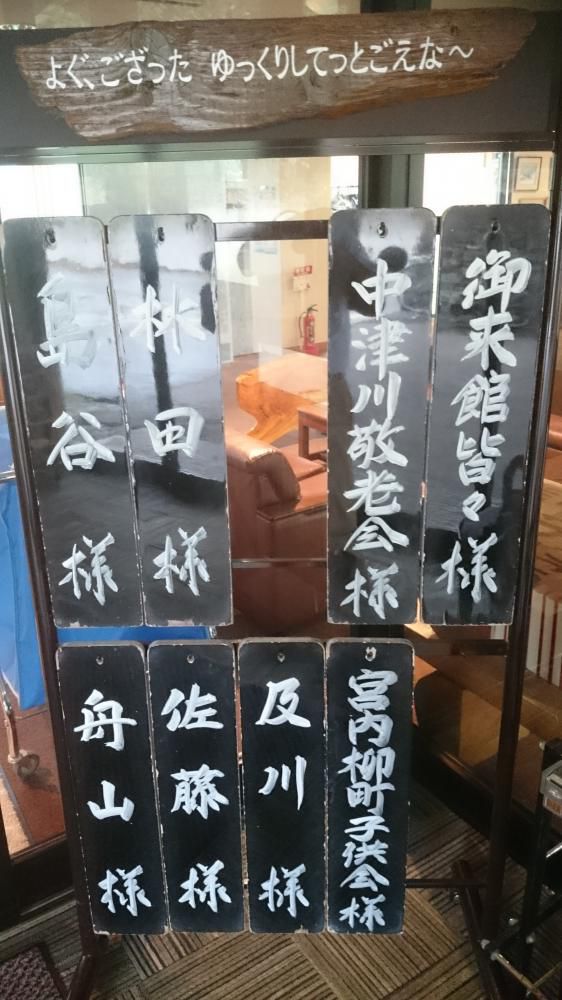 よぐ、ござった ゆっくりしてっとごえな〜
御来館皆々様
中津川敬老会様
林田様
島谷様
宮内柳町子供会様
及川様
佐藤様
舟山様